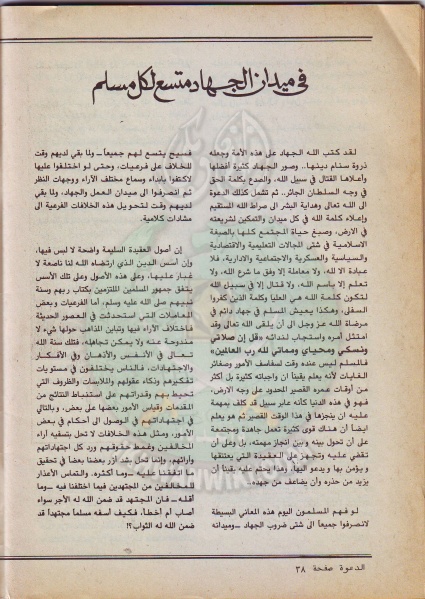 في ميدان الجهاد متسع لكل مسلم
لقد كتب الله الجهاد على هذه الأمة وجعله
ذروة سنام دينها.. وصور الجهاد كثيرة أفضلها
وأعلاها القتال في سبيل الله، والصدع بكلمة الحق
في وجه السلطان الجائر.. ثم تشمل كذلك الدعوة
الى الله تعالى وهداية البشر الى صراط الله المستقيم
وإعلاء كلمة الله في كل ميدان والتمكين لشريعته
في الارض، وصبغ حياة المجتمع كلها بالصبغة
الاسلامية في شتى المجالات التعليمية والاقتصادية
والسياسية والعسكرية والاجتماعية والادارية، فلا
عبادة الا لله، ولا معاملة إلا وفق ما شرع الله، ولا
تعلم إلا باسم الله، ولا قتال إلا في سبيل الله
لتكون كلمة الله هي العليا وكلمة الذين كفروا
السفلى، وهكذا يعيش المسلم في جهاد دائم في
مرضاة الله عز وجل الى أن يلقى الله تعالى وقد
امتثل أمره واستجاب لندائه «قل إن صلاتي
ونسكي ومحياي ومماتي لله رب العالمين»
فالمسلم ليس عنده وقت لسفاسف الأمور وصغائر
الغايات لأنه يعلم يقيناً ان واجباته كثيرة بل أكثر
من أوقات عمره القصير المحدود على وجه الارض،
فهو في هذه الدنيا كأنه عابر سبيل قد كلف بمهمة
عليه ان ينجزها في هذا الوقت القصير ثم هو يعلم
ايضا أن هناك قوى كثيرة تعمل جاهدة ومجتمعة
على أن تحول بينه وبين انجاز مهمته، بل وعلى أن
تقضي عليه وتجهز على العقيدة التي يعتنقها
ويؤمن بها ويدعو اليها، وهذا يحتم عليه يقيناً أن
يزيد من حذره وأن يضاعف من جهده..
لو فهم المسلمون اليوم هذه المعاني البسيطة
لانصرفوا جميعاً الى شتى ضروب الجهاد ــ وميدانه
فسيح يتسع لهم جميعاً ــ ولما بقي لديهم وقت
للخلاف على فرعيات، وحتى لو اختلفوا عليها
لاكتفوا بابداء وسماع مختلف الآراء ووجهات النظر
ثم انصرفوا الى ميدان العمل والجهاد، ولما بقي
لديهم وقت لتحويل هذه الخلافات الفرعية الى
مشادات كلامية.
إن أصول العقيدة السليمة واضحة لا لبس فيها،
وإن أسس الدين الذي ارتضاه الله لنا ناصعة لا
غبار عليها، وعلى هذه الأصول وعلى تلك الأسس
يتفق جمهور المسلمين الملتزمين بكتاب ربهم وسنة
نبيهم صلى الله عليه وسلم، أما الفرعيات وبعض
المعاملات التي استحدثت في العصور الحديثة
فاختلاف الآراء فيها وتباين المذاهب حولها شيء لا
مندوحة عنه ولا يمكن تجاهله، فتلك سنة الله
تعالى في الأنفس والأذهان وفي الافكار
والاجتهادات، فالناس يختلفون في مستويات
تفكيرهم وذكاء عقولهم والملابسات والظروف التي
تحيط بهم وقدراتهم على استنباط النتائج من
المقدمات وقياس الأمور بعضها على بعض، وبالتالي
في اجتهاداتهم في الوصول الى أحكام في بعض
الأمور، ومثل هذه الخلافات لا تحل بتسفيه آراء
المخالفين وغمط حقوقهم ورد كل اجتهاداتهم
وآرائهم، وإنما تحل بشد أزر بعضنا بعضاً في تحقيق
ما اتفقنا عليه ــ وما أكثره، والتماس الأعذار
للمخالفين من المجتهدين فيما اختلفنا فيه ــ وما
أقله ــ فان المجتهد قد ضمن الله له الأجر سواء
أصاب أم أخطأ، فكيف أسفه مسلماً مجتهداً قد
ضمن الله له الثواب؟!
الدعوة صفحة ٣٨